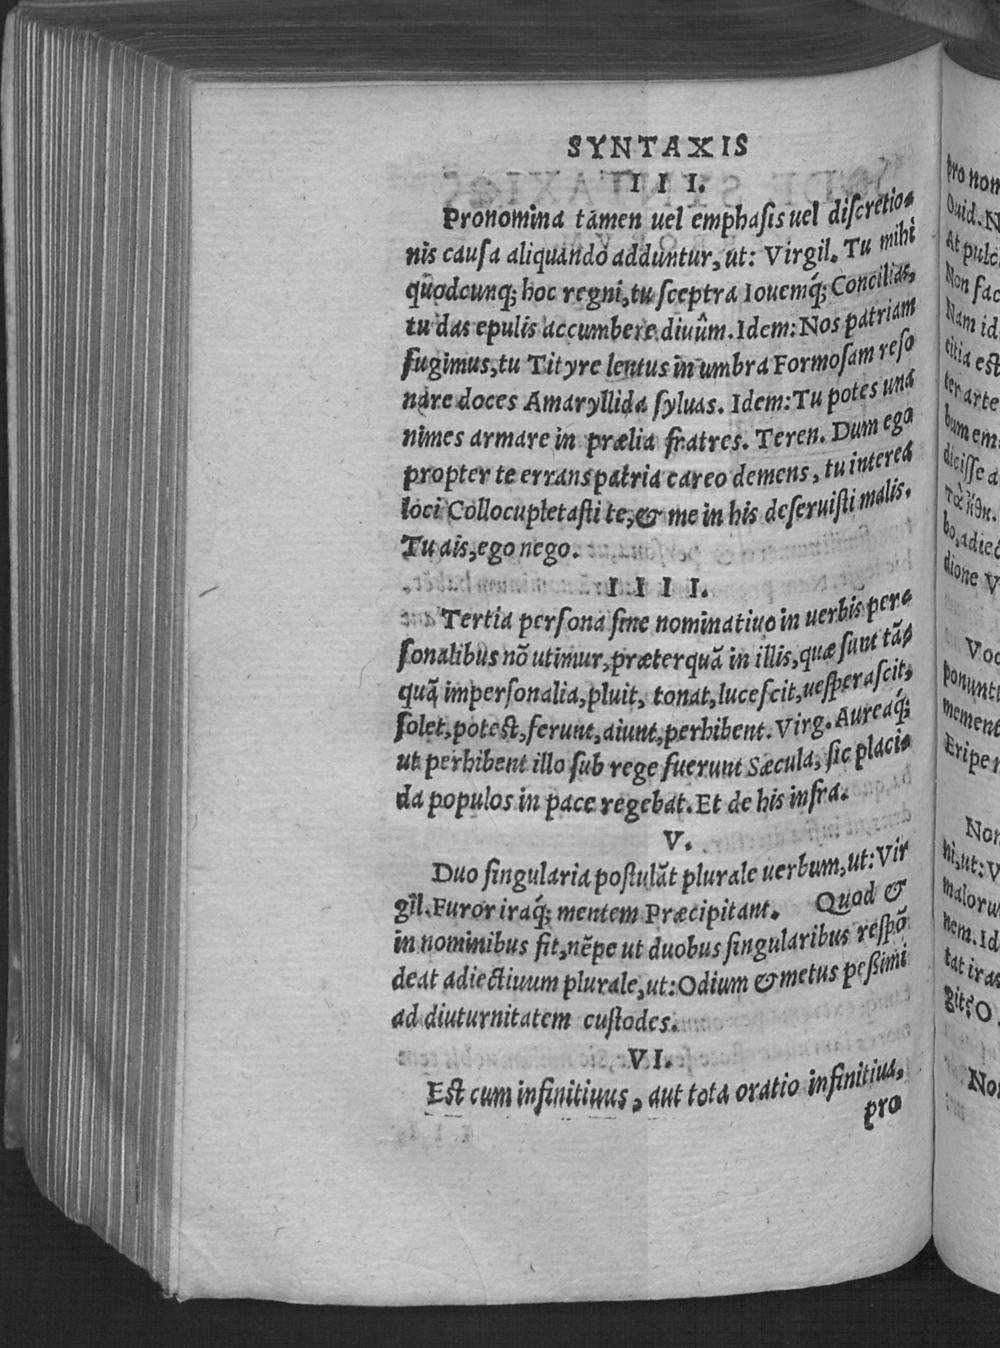 SYNTAXIS
III.
Pronomina tamen uel emphasis uel discretio-
nis causa aliquando adduntur, ut: Virgil. Tu mihi
quodcunq; hoc regni, tu sceptra Iouemq́; Concilias,
tu das epulis accumbere diuûm. Idem: Nos patriam
fugimus, tu Tityre lentus in umbra Formosam reso
nare doces Amaryllida syluas. Idem: Tu potes una
nimes armare in prælia fratres. Teren. Dum ego
propter te errans patria careo demens, tu interea
loci Collocupletasti te, & me in his deseruisti malis.
Tu ais, ego nego.
IIII.
Tertia persona sine nominatiuo in uerbis per-
sonalibus nõ utimur, præterquã in illis, quæ sunt tã-
quã impersonalia, pluit, tonat, lucescit, uesperascit,
solet, potest, ferunt, aiunt, perhibent. Virg. Aureaq́;
ut perhibent illo sub rege fuerunt Sæcula, sic placi-
da populos in pace regebat. Et de his infra.
V.
Duo singularia postulãt plurale uerbum, ut: Vir
gil. Furor iraq́; mentem Præcipitant. Quod &
in nominibus fit, nẽpe ut duobus singularibus respõ
deat adiectiuum plurale, ut: Odium & metus pessimi
ad diuturnitatem custodes.
VI.
Est cum infinitiuus, aut tota oratio infinitiua,
pro
pro nom
Ouid. N
At pulc
Non fac
Nam id
citia est
ter arte
bum em
dicisse a
bo, adiec
dione V
Voc
ponunt
mement
Eripe
Non
ni, ut: V
maloru
nem. Id
tat iras
git? O
Non